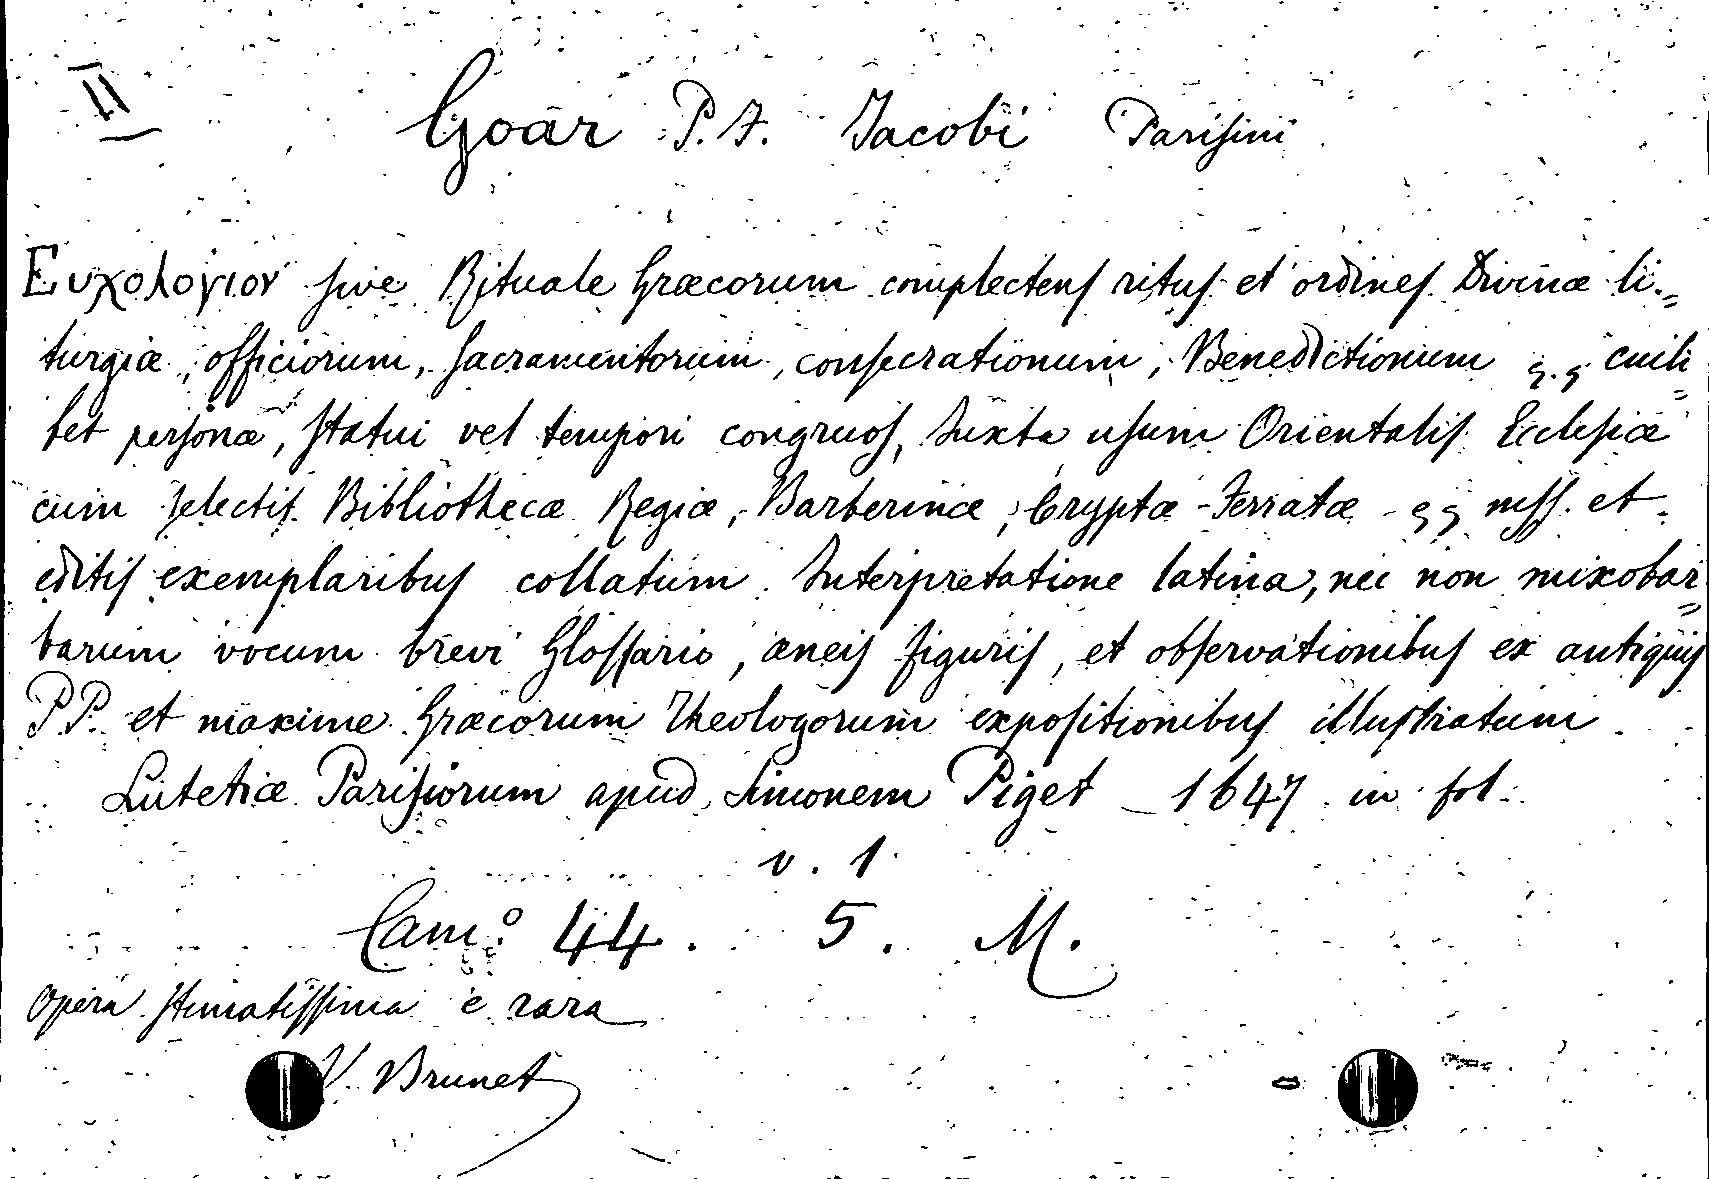 II
Goar P. F. Jacobi Parisini
Ευχολογιον sive Rituale Græcorum complectens ritus et ordines Divinæ li=
turgiæ, officiorum, sacramentorum, consecrationum, Benedictionum &.&. cuili=
bet personæ, statui vel tempori congruos, Juxta usum Orientalis Ecclesiæ
cum selectis Bibliothecæ Regiæ, Barberinæ, Cryptæ-Ferratæ - && mss. et
editis exemplaribus collatum. Interpretatione latina, nec non mixobar=
barum vocum brevi Glossario, æneis figuris, et observationibus ex antiquis
PP. et maxime Græcorum Theologorum expositionibus illustratum
Lutetiæ Parisiorum apud Simonem Piget - 1647 in fol.
v. 1
Cam.º 44. 5. M.
Opera stimatissima e rara
V. Brunet